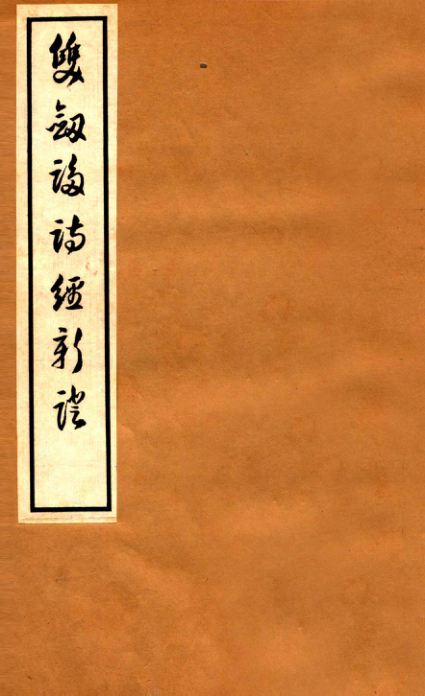 雙劍誃詩經新證